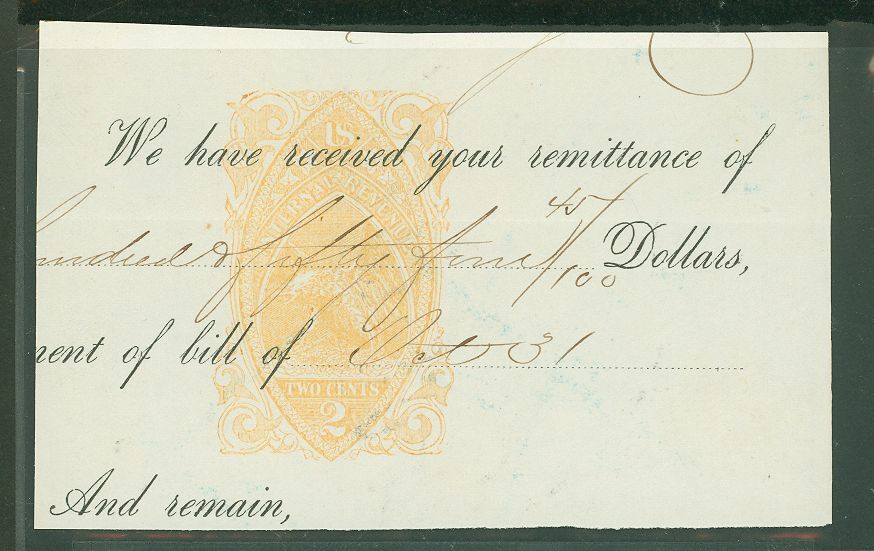 U.S.
INTERNAL REVENUE
We have received your remittance of
undred & fifty five 45/100 Dollars,
ment of bill of Oct 31
TWO CENTS
2
And remain,